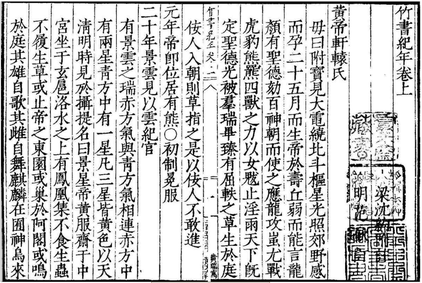 竹書紀年卷上
梁沈約註
明范
黃帝軒轅氏
母曰附寶見大電繞北斗樞星光照郊野感
而孕二十五月而生帝於壽丘弱而能言龍
顏有聖德劾百神朝而使之應龍攻蚩尤戰
虎豹熊羆四獸之力以女魃止淫雨天下既
定聖德光被羣瑞畢臻有屈軼之草生於庭
佞人入朝則草指之是以佞人不敢進
元年帝即位居有熊〇初制冕服
二十年景雲見以雲紀官
有景雲之瑞赤方氣與青方氣相連赤方中
有兩星青方中有一星凡三星皆黃色以天
清明時見於攝提名曰景星帝黃服齋于中
宮坐于玄扈洛水之上有鳳凰集不食生蟲
不復生草或止帝之東園或巢於阿閣或鳴
於庭其雄自歌其雌自舞麒麟在囿神鳥來